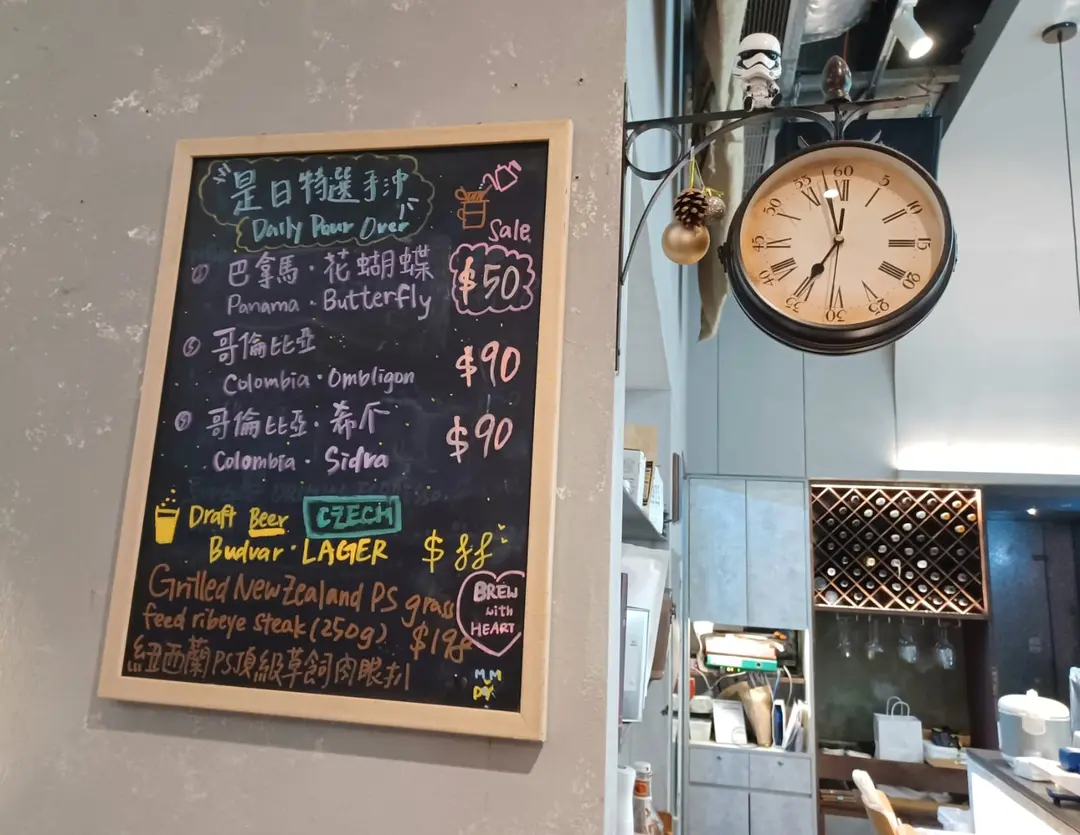 是日特選手沖
Daily Pour Over
Sale
① 巴拿馬・花蝴蝶 $50
Panama・Butterfly
哥倫比亞 $90
Colombia・Ombligon
哥倫比亞・希 $90
Colombia・Sidra
Draft Beer CZECH
Budvar・LAGER $
Grilled New Zealand PS grass
feed ribeye steak (250g) $198
紐西蘭PS頂級草飼肉眼扒
BREW
with
HEART
60
5
10
15
20
25
30
35
40
45
50
55